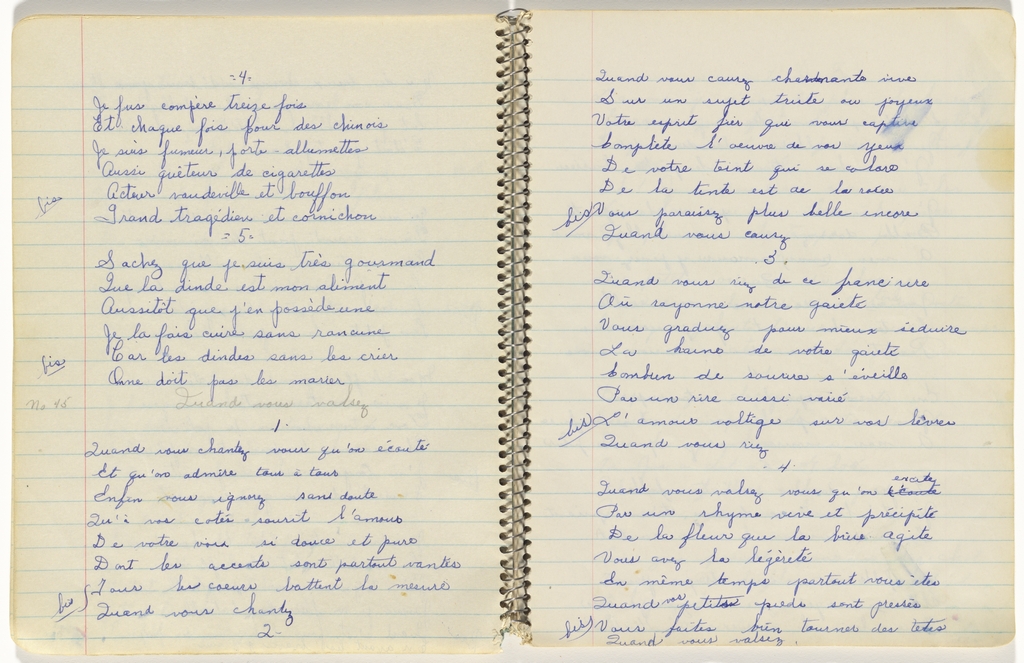 - 4 -
Je fus compère treize fois
Et chaque fois pour des chinois
Je suis fumeur, porte-allumettes
Aussi quêteur de cigarettes
Acteur vaudeville et bouffon
bis Grand tragédien et cornichon
- 5 -
Sachez que je suis très gourmand
Que la dinde est mon aliment
Aussitôt que j'en possède une
Je la fais cuire sans rancune
Car les dindes sans les crier
bis On ne doit pas les marier
No 45 Quand vous valsez
1.
Quand vous chantez vous qu'on écoute
Et qu'on admire tour à tour
Enfin vous ignorez sans doute
Qu'à vos cotés sourit l'amour
De votre voix si douce et pure
Dont les accents sont partout vantés
Tous les coeurs battent la mesure
bis Quand vous chantez
2.
Quand vous causez charmante vive
Sur un sujet triste ou joyeux
Votre esprit fier qui vous captive
Complète l'oeuvre de vos yeux
De votre teint qui se colore
De la teinte est de la rose
bis Vous paraissez plus belle encore
Quand vous causez
3.
Quand vous riez de ce franc rire
Où rayonne notre gaieté
Vous graduez pour mieux séduire
La haine de votre gaieté
Combien de sourire s'éveille
Par un rire aussi varié
bis L'amour voltige sur vos lèvres
Quand vous riez
4.
Quand vous valsez vous qu'on écoute excitez
Par un rhyme vive et précipité
De la fleur que la brise agite
Vous avez la légèreté
En même temps partout vous êtes
Quand vos petits pieds sont pressés
bis Vous faites bien tourner des têtes
Quand vous valsez.